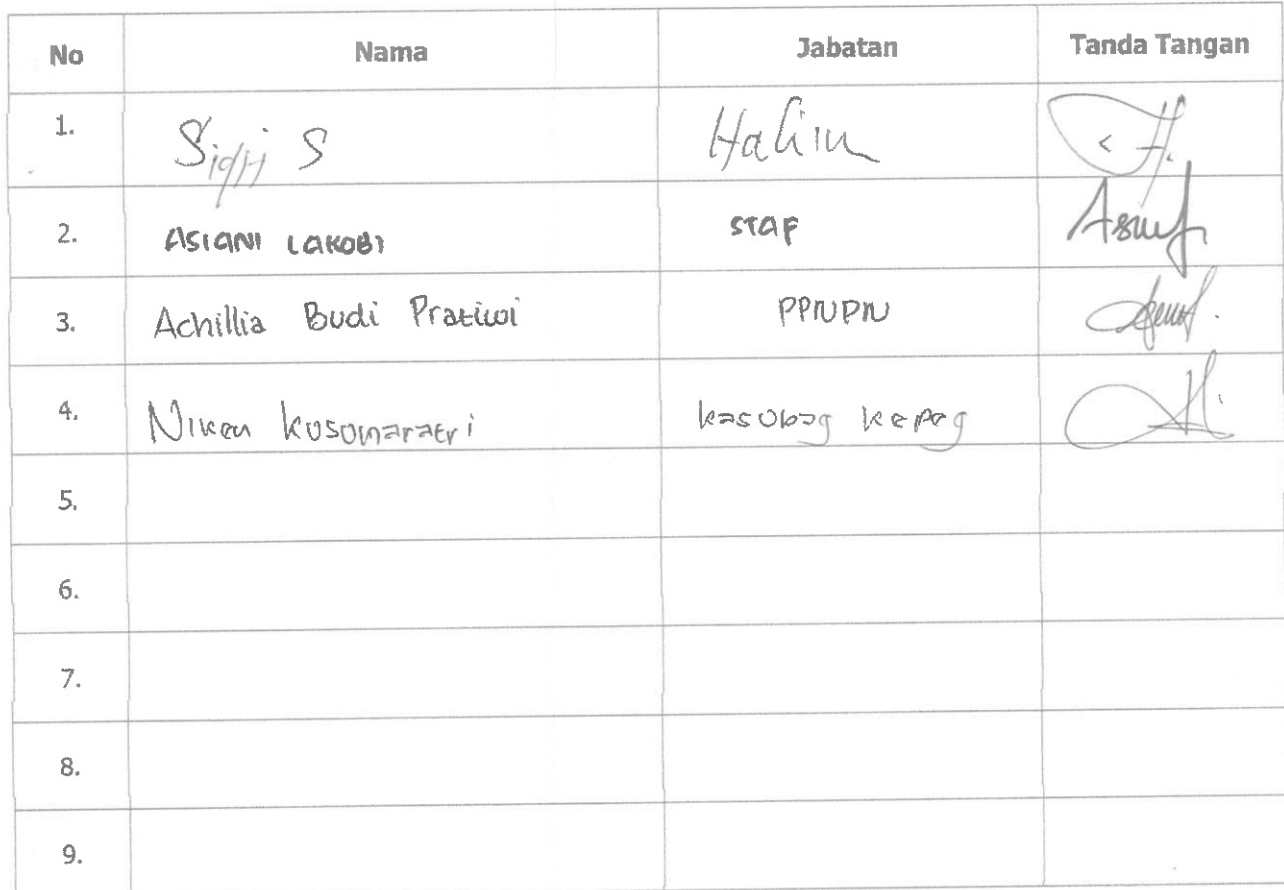 No Nama Jabatan Tanda Tangan
1. S Hakim
2. ASIANI LAKOBI STAF
3. Achillia Budi Pratiwi PPNPN
4. Niken Kusumaratri kasubag kepeg
5.
6.
7.
8.
9.